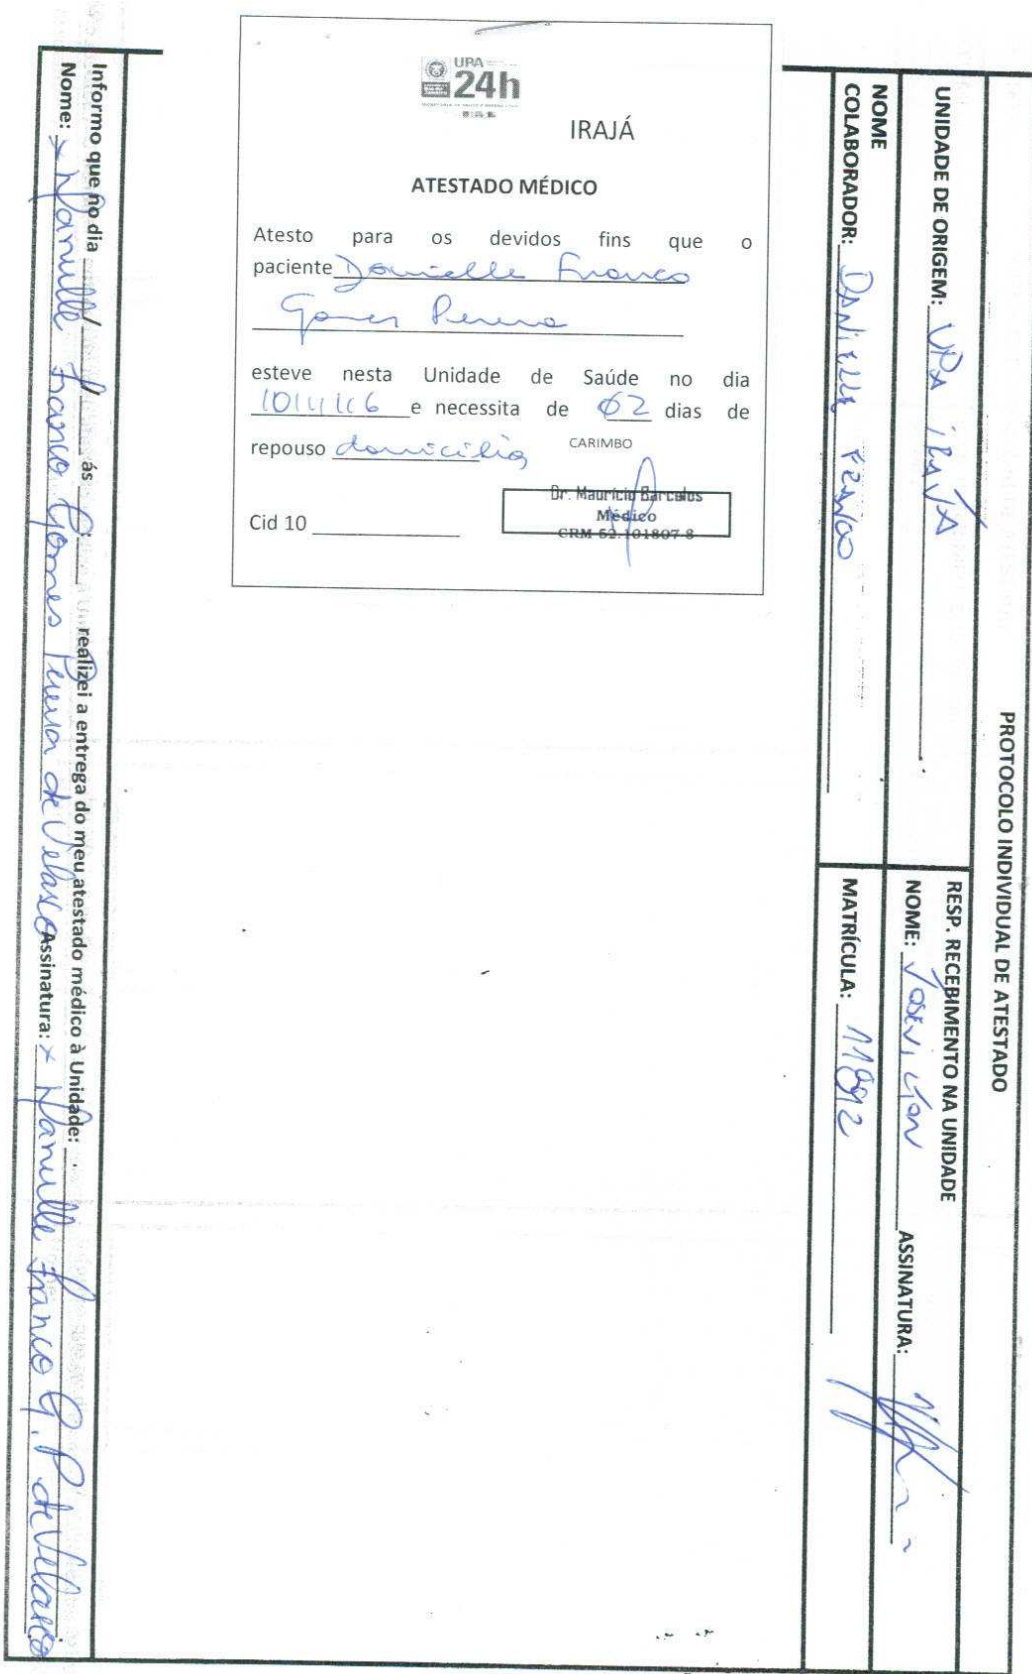 PROTOCOLO INDIVIDUAL DE ATESTADO
UNIDADE DE ORIGEM: UPA IRAJÁ
RESP. RECEBIMENTO NA UNIDADE
NOME: ASSINATURA:
NOME
COLABORADOR: DANIELLE FRANCO
MATRÍCULA: 11892
UPA
24h
IRAJÁ
ATESTADO MÉDICO
Atesto para os devidos fins que o
paciente Danielle Franco
Gomes Pereira
esteve nesta Unidade de Saúde no dia
e necessita de 02 dias de
repouso
CARIMBO
Dr. Mauricio Barcelos
Médico
CRM 52.101807-8
Cid 10
Informo que no dia / / ás : realizei a entrega do meu atestado médico à Unidade:
Nome: x Danielle Franco Gomes Pereira de Velasco Assinatura: x Danielle Franco G. P. de Velasco